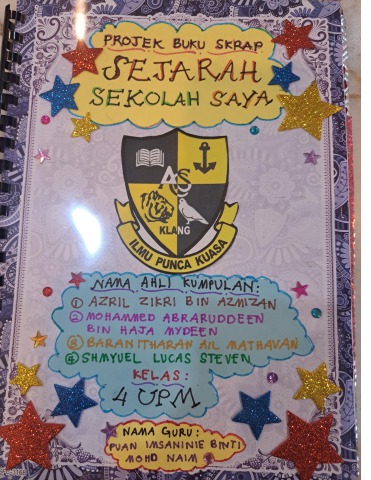 PROJEK BUKU SKRAP
SEJARAH
SEKOLAH SAYA
AS
KLANG
ILMU PUNCA KUASA
NAMA AHLI KUMPULAN:
① AZRIL ZIKRI BIN AZMIZAN
② MOHAMMED ABRARUDDEEN
BIN HAJA MYDEEN
③ BARANITHARAN A/L MATHAVAN
④ SHMYUEL LUCAS STEVEN
KELAS:
4 UPM
NAMA GURU:
PUAN IMSANINIE BINTI
MOHD NAIM